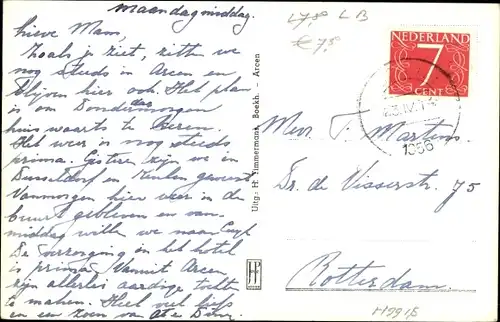 Maandagmiddag.
Lieve Mam,
Zoals je ziet, zitten we
nog steeds in Arcen en
blijven hier ook. Het plan
is om Donderdagmorgen
huiswaarts te keren.
Het weer is nog steeds
prima. Gisteren zijn we in
Dusseldorf en Keulen geweest.
Vanmorgen hier weer in de
buurt gebleven en van-
middag willen we naar Cuyk
De verzorging in het hotel
is prima. Vanuit Arcen
zijn allerlei aardige tochten
te maken. Heel veel liefs
en een zoen van
Uitg.: H. Timmermans, Boekh. - Arcen
L B
€ 7,5
NEDERLAND
7
CENT
1956
Mevr. T. Martens
Dr. de Visserstr. 75
Rotterdam.